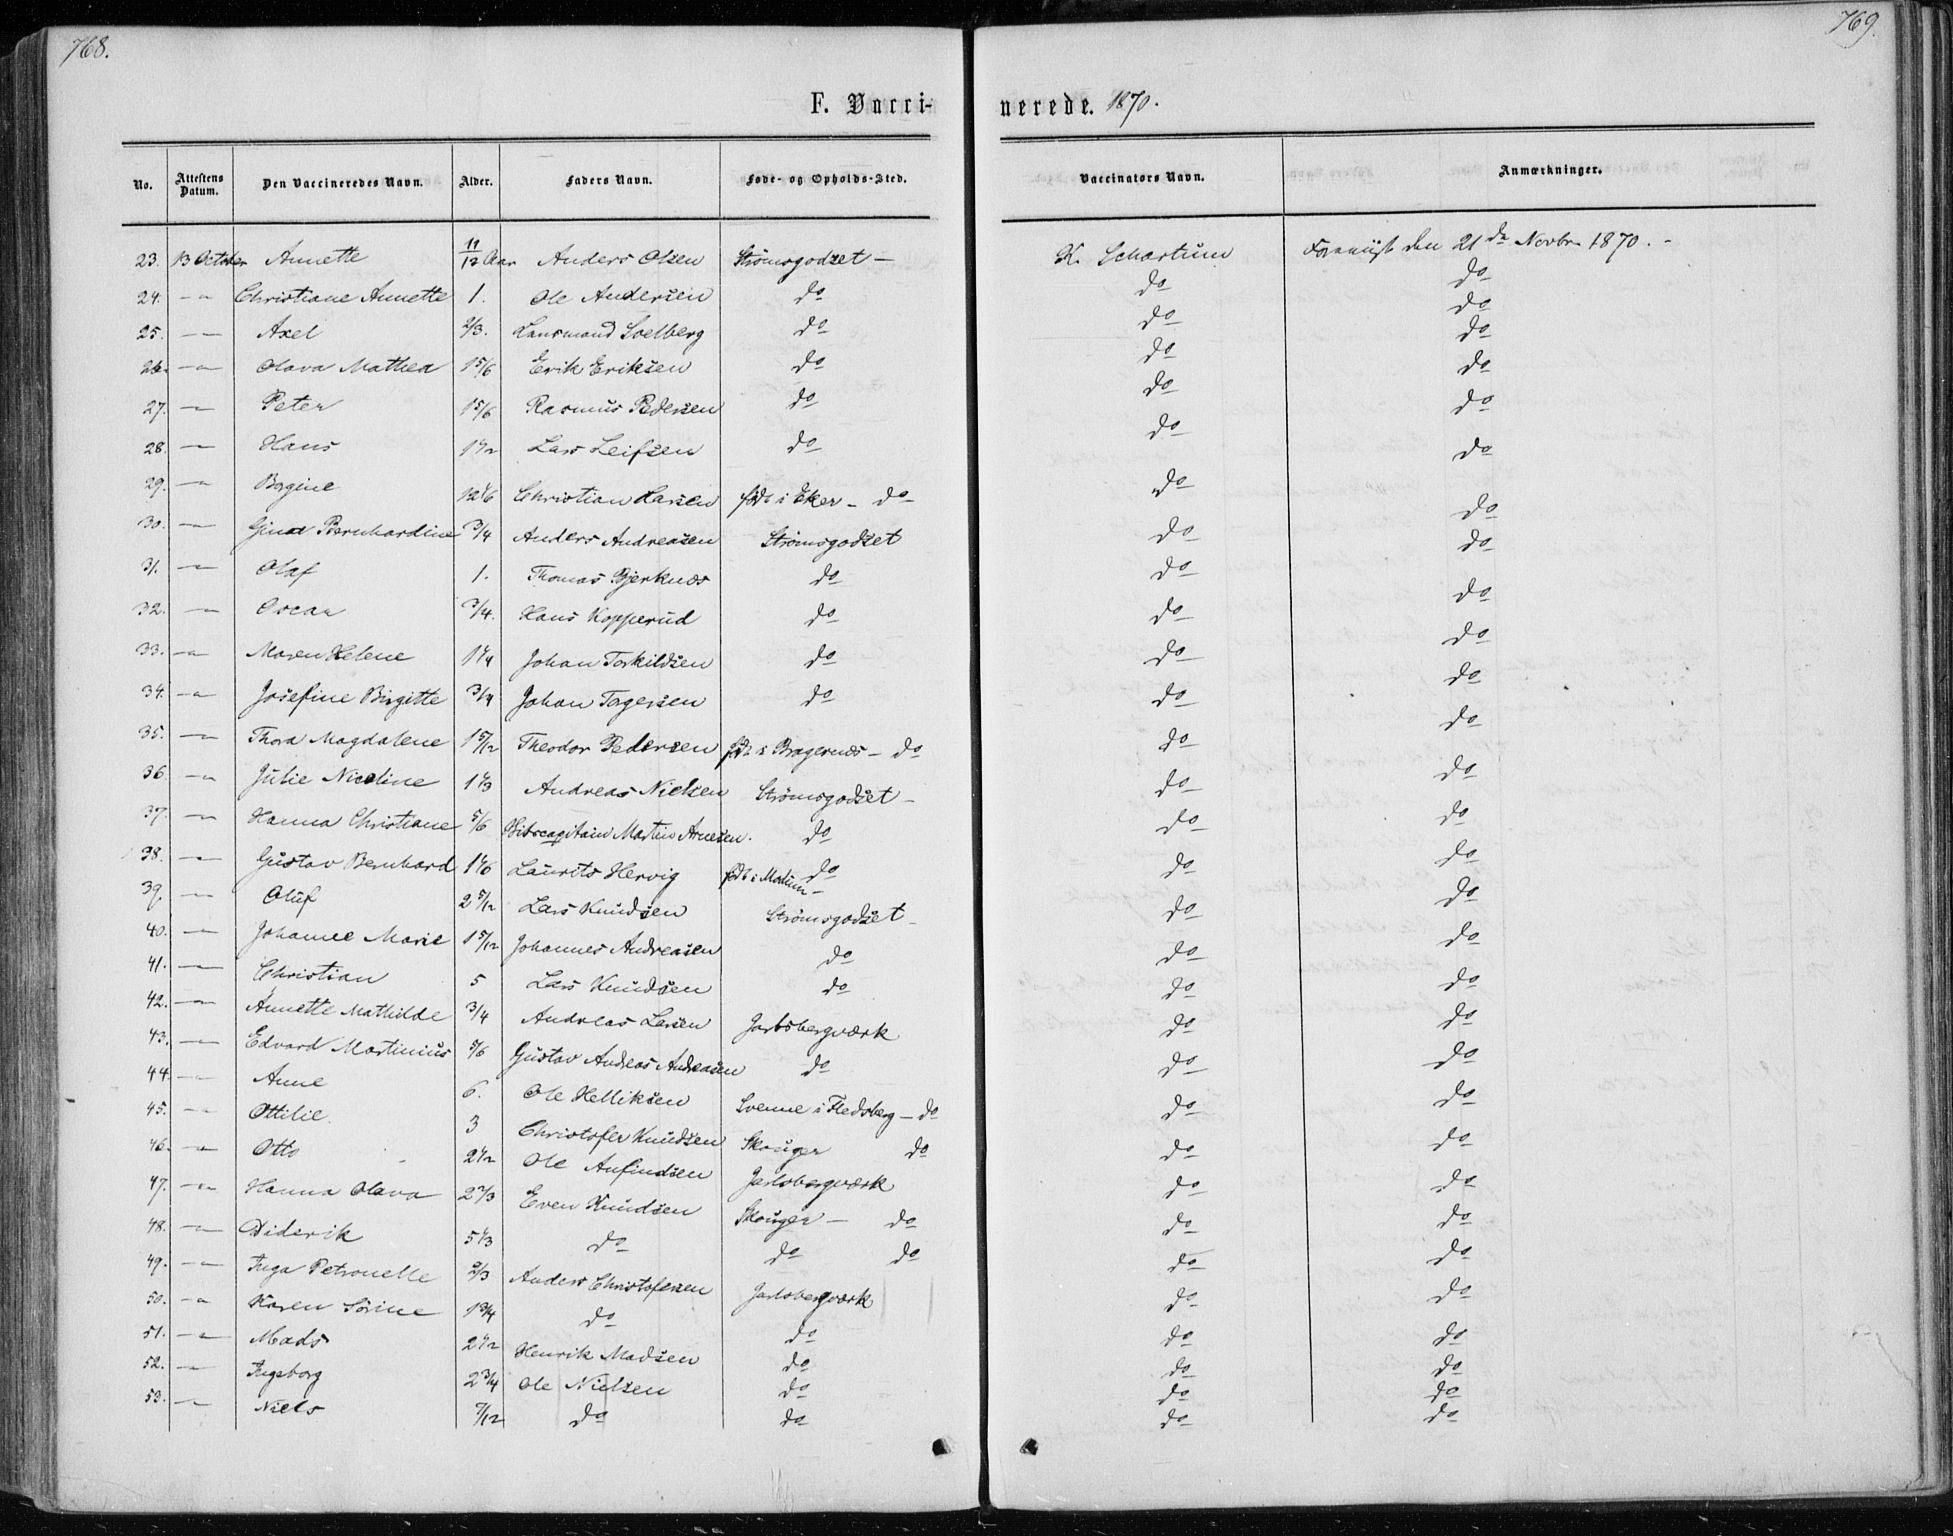 768.
769.
F. Vacci-
nerede. 1870.
No. Attestens Datum. Den Vaccineredes Navn. Alder. Faders Navn. Føde- og Opholds-Sted. Vaccinators Navn. Anmærkninger.
23. 13 October Annette 11/12 Aar Anders Olsen Strömsgodset — K. Schartum den 21de Novbr 1870. -
24. — Christiane Annette 1. Ole Andersen do do do
25. — Axel 2/3. Lensmand Soelberg do do do
26. — Olava Mathea 1 5/6 Erik Eriksen do do do
27. — Peter 1 5/6 Rasmus Pedersen do do do
28. — Hans 1 1/2 Lars Leifsen do do do
29. — Bergine 12 1/6 Christian Larsen født i Eker — do do do
30. — Gina Bernhardine 3/4 Anders Andreasen Strömsgodset do do
31. — Olaf 1. Thomas Bjerknes do do do
32. — Oscar 3/4. Hans Kopperud do do do
33. — Maren Helene 1 1/4 Johan Torkildsen do do do
34. — Josefine Birgitte 3/4 Johan Torgersen do do do
35. — Thora Magdalene 1 5/12 Theodor Pedersen født i Bragernes — do do do
36. — Julie Nicoline 1 1/3 Andreas Nielsen Strömsgodset — do do
37. — Hanna Christiane 5/6 Skibscapitain Martin Arnesen. do do do
38. — Gustav Bernhard 1 1/6 Laurits Hervig født i Modum — do do do
39. — Oluf 2 5/12 Lars Knudsen Strömsgodset — do do
40. — Johanne Marie 1 5/12 Johannes Andreasen do do do
41. — Christian 5 Lars Knudsen do do do
42. — Annette Mathilde 3/4 Andreas Larsen Jarlsbergværk do do
43. — Edvard Martinius 5/6 Gustav Andreas Andreasen do do do
44. — Anne 6. Ole Helliksen Svenne i Fledsberg — do do do
45. — Ottilie. 3 Christofer Knudsen Skouger do do do
46. — Otto 2 1/2 Ole Anfindsen Jarlsbergværk do do
47. — Hanna Olava 2 2/3 Even Knudsen Skouger — do do do
48. — Diderik 5 1/3 do do do do do
49. — Inga Petronelle 2/3 Anders Christofersen Jarlsbergværk do do
50. — Karen Sörine 1 3/4 do do do do
51. — Mads 2 1/2 Henrik Madsen do do do
52. — Ingeborg 2 3/4 Ole Nielsen do do do
53. — Niels 7/12 do do do do